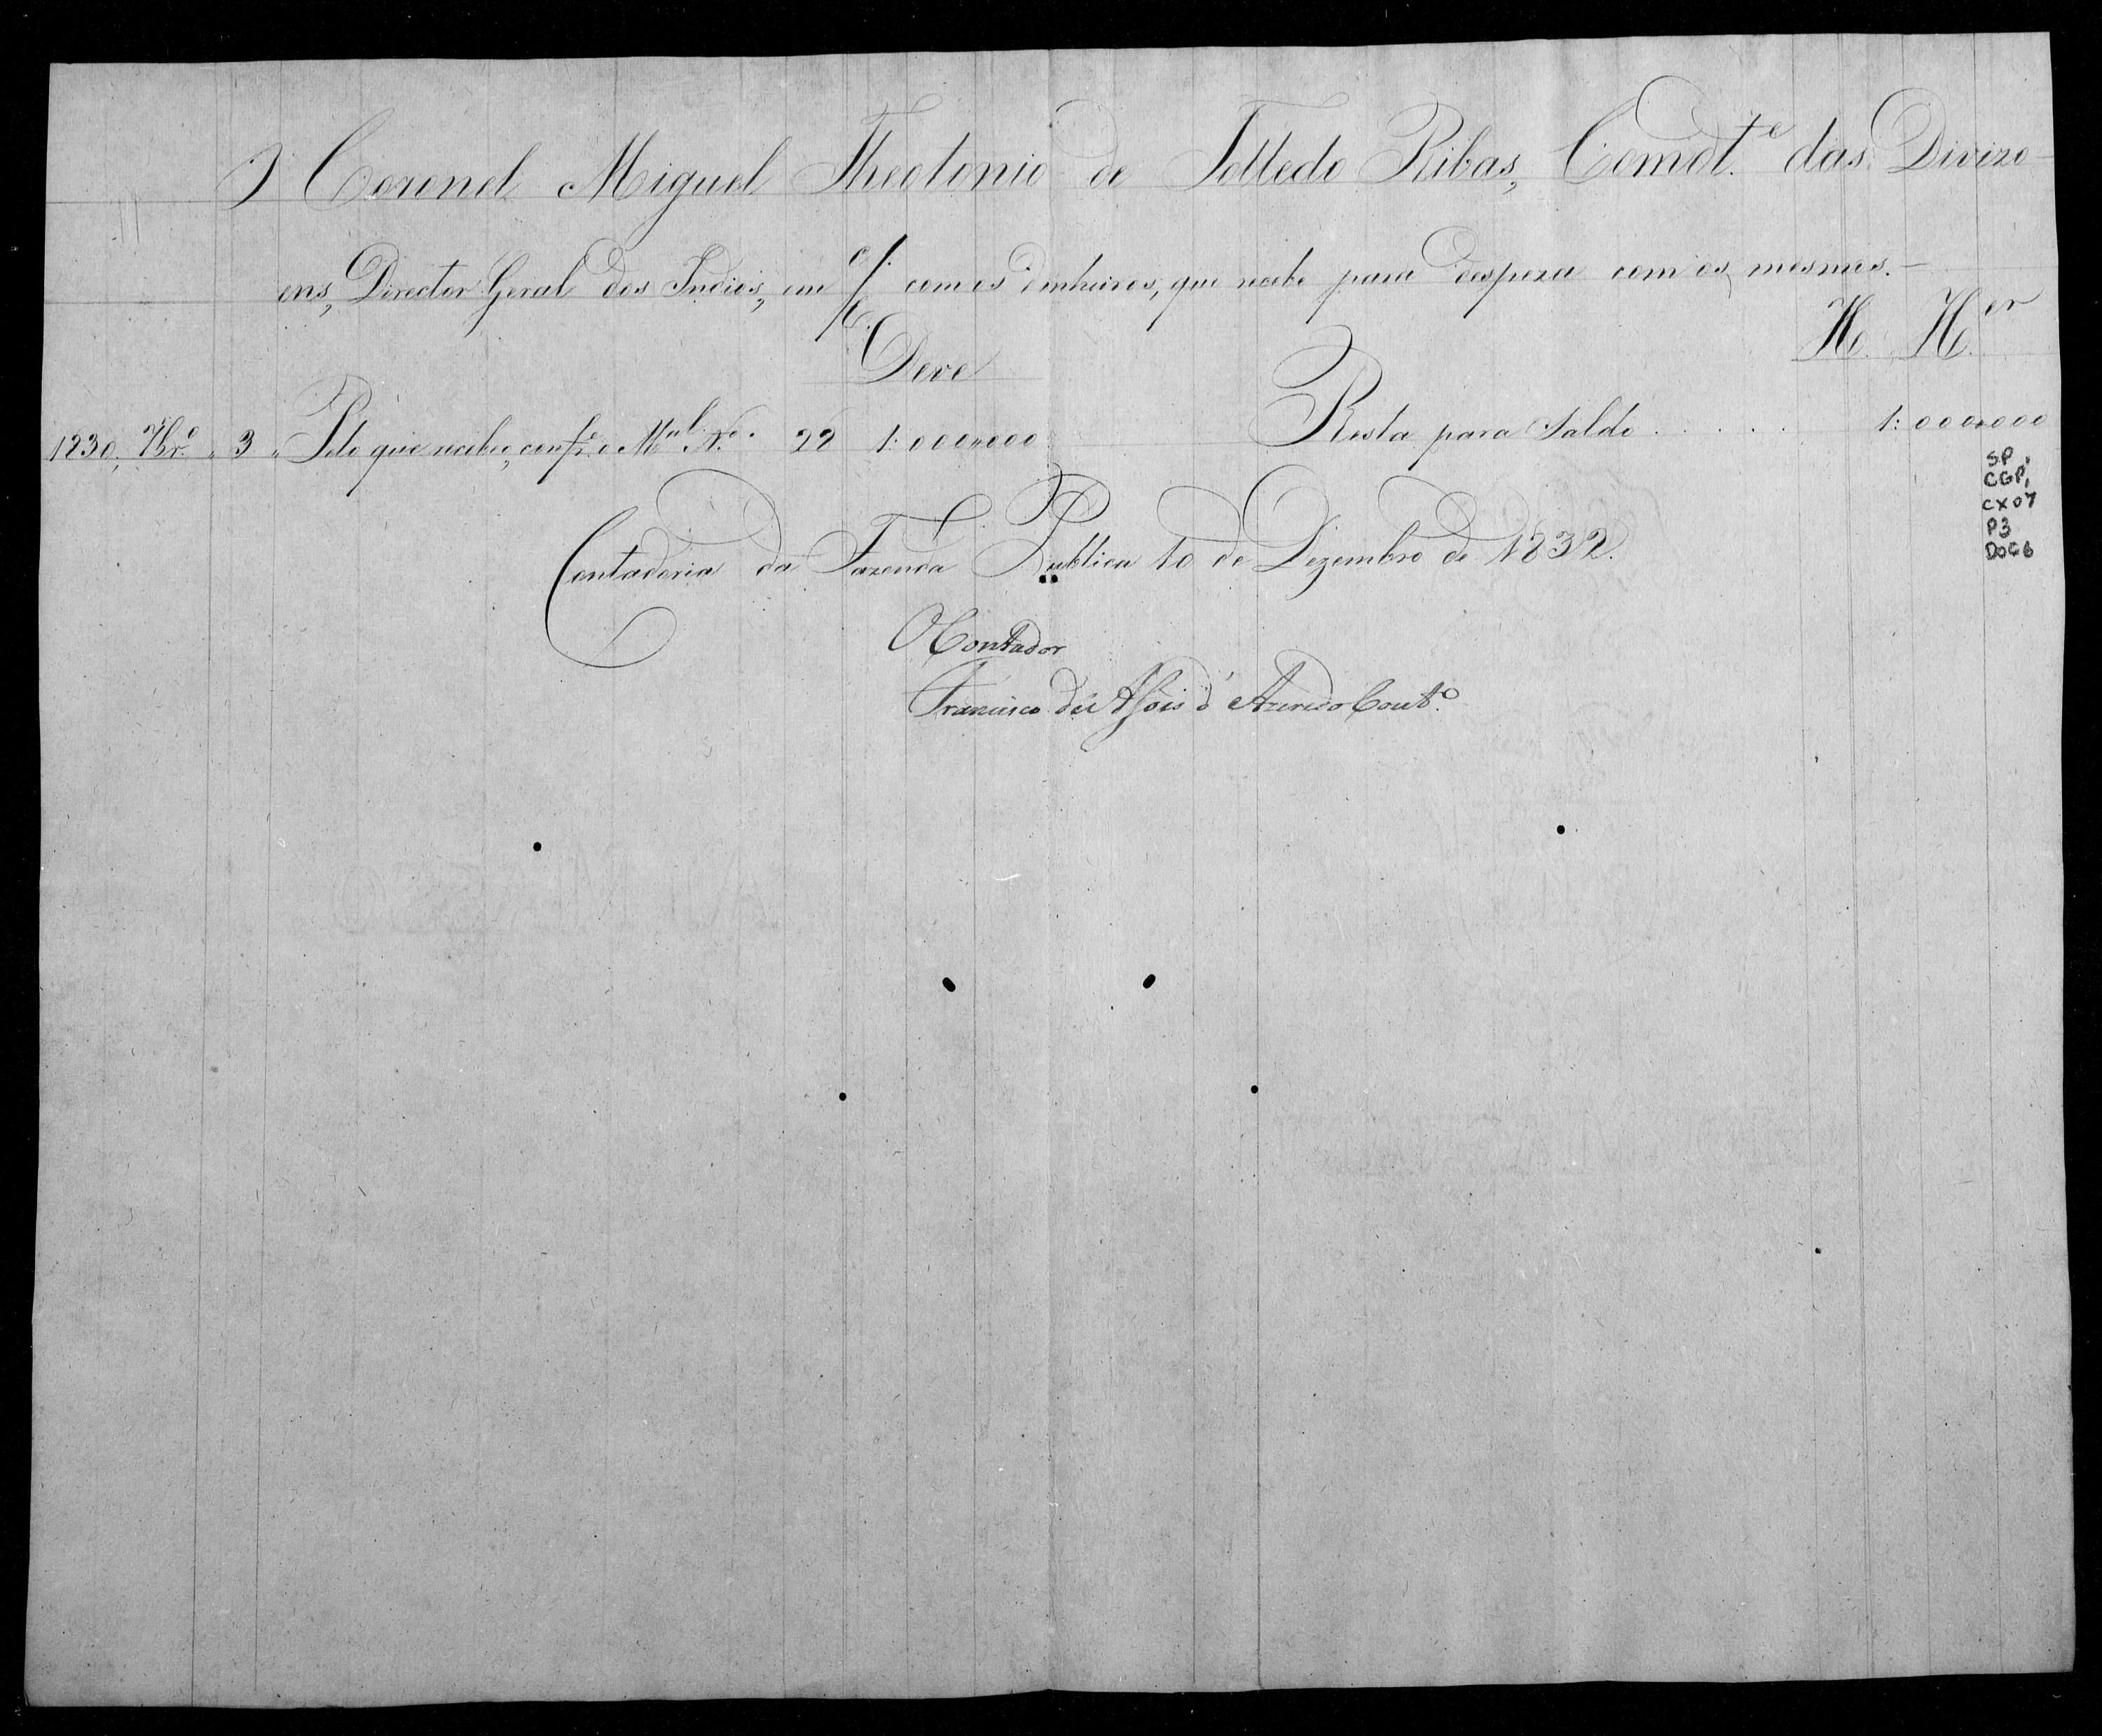 O Coronel Miguel Theotonio de Tolledo Ribas, Comdt.e das Divizo-
ens, Director Geral dos Indios, em c/c. com os dinheiros, que recebe para despeza com os mesmos.-
Deve
H. H.er
1830, 7br.o 3 Pelo que recebeo, conf.e o M.al N.o 22 1:000,,000
Resta para Saldo . . . . . 1:000,,000
SP,
CGP,
CX07
P3
DOC6
Contadoria da Fazenda Publica 10 de Dezembro de 1832.
O Contador
Francisco de Assis d'Azeredo Cout.o